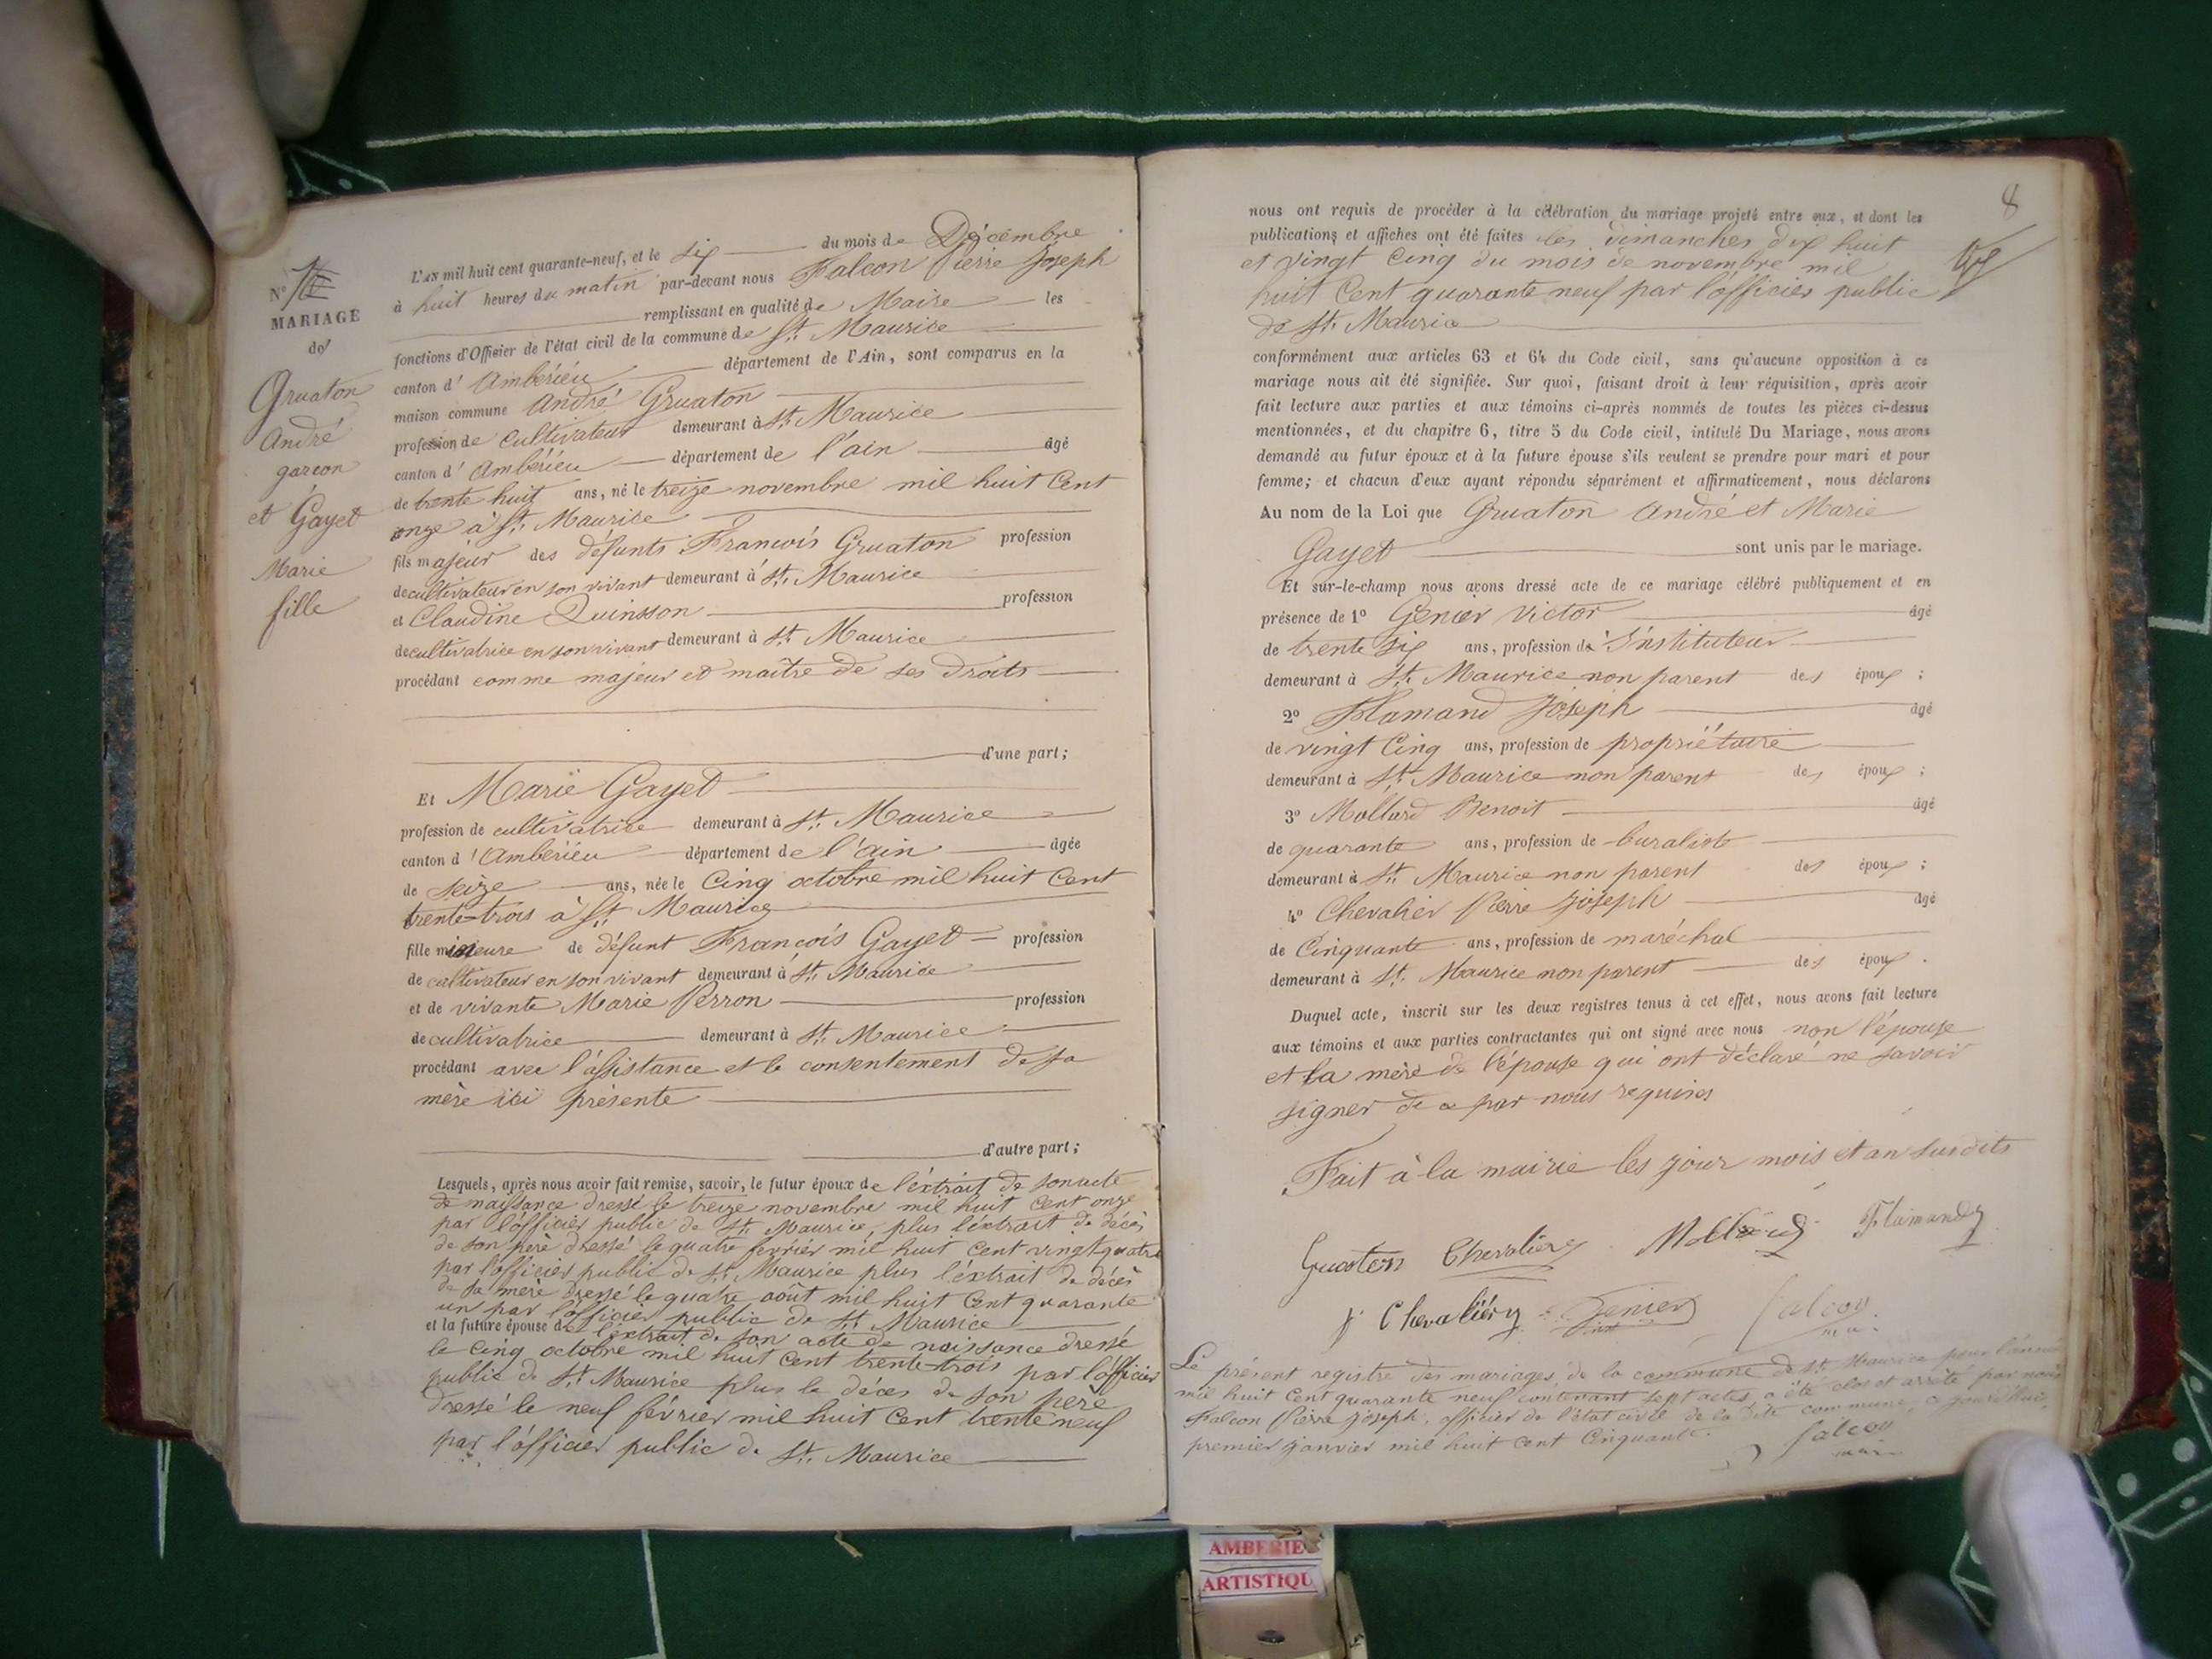 N° 7
MARIAGE
des
Gruaton
André
garcon
et Gayet
Marie
fille
L'AN mil huit cent quarante-neuf, et le six du mois de Décembre
à huit heures du matin par-devant nous Falcon Pierre Joseph
remplissant en qualité de Maire les
fonctions d'Officier de l'état civil de la commune de St. Maurice
canton d'Ambérieu département de l'Ain, sont comparus en la
maison commune André Gruaton
profession de Cultivateur demeurant à St. Maurice
canton d'Ambérieu département de l'ain âgé
de trente huit ans, né le treize novembre mil huit Cent
onze à St. Maurice
fils majeur des défunts Francois Gruaton profession
de cultivateur en son vivant demeurant à St. Maurice
et Claudine Quinson profession
de cultivatrice en son vivant demeurant à St. Maurice
procédant comme majeur et maître de ses droits
d'une part;
Et Marie Gayet
profession de cultivatrice demeurant à St. Maurice
canton d'Ambérieu département de l'ain âgée
de seize ans, née le Cinq octobre mil huit Cent
trente-trois à St. Maurice
fille mineure de défunt François Gayet profession
de cultivateur en son vivant demeurant à St. Maurice
et de vivante Marie Perron profession
de cultivatrice demeurant à St. Maurice
procédant avec l'assistance et le consentement de sa
mère ici présente
d'autre part;
Lesquels, après nous avoir fait remise, savoir, le futur époux de l'extrait de son acte
de naissance dressé le treize novembre mil huit Cent onze
par l'officier public de St. Maurice, plus l'extrait de décès
de son père dressé le quatre fevrier mil huit cent vingt quatre
par l'officier public de St. Maurice plus l'extrait de décès
de sa mère dressé le quatre août mil huit Cent quarante
un par l'officier public de St. Maurice
et la future épouse de l'extrait de son acte de naissance dressé
le Cinq octobre mil huit Cent trente-trois par l'officier
public de St. Maurice plus le décès de son père
dressé le neuf février mil huit Cent trente neuf
par l'officier public de St. Maurice
8
nous ont requis de procéder à la célébration du mariage projeté entre eux, et dont les
publications et affiches ont été faites les dimanches dix huit
et vingt Cinq du mois de novembre mil
huit Cent quarante neuf par l'officier public
de St. Maurice
conformément aux articles 63 et 64 du Code civil, sans qu'aucune opposition à ce
mariage nous ait été signifiée. Sur quoi, faisant droit à leur réquisition, après avoir
fait lecture aux parties et aux témoins ci-après nommés de toutes les pièces ci-dessus
mentionnées, et du chapitre 6, titre 5 du Code civil, intitulé Du Mariage, nous avons
demandé au futur époux et à la future épouse s'ils veulent se prendre pour mari et pour
femme; et chacun d'eux ayant répondu séparément et affirmativement, nous déclarons
Au nom de la Loi que Gruaton André et Marie
Gayet sont unis par le mariage.
Et sur-le-champ nous avons dressé acte de ce mariage célébré publiquement et en
présence de 1° Genier Victor âgé
de trente six ans, profession d'Instituteur
demeurant à St. Maurice non parent des époux;
2° Flamand Joseph âgé
de vingt Cinq ans, profession de propriétaire
demeurant à St. Maurice non parent des époux;
3° Mollard Benoit âgé
de quarante ans, profession de buraliste
demeurant à St. Maurice non parent des époux;
4° Chevalier Pierre Joseph âgé
de Cinquante ans, profession de maréchal
demeurant à St. Maurice non parent des époux.
Duquel acte, inscrit sur les deux registres tenus à cet effet, nous avons fait lecture
aux témoins et aux parties contractantes qui ont signé avec nous non l'épouse
et la mère de l'épouse qui ont déclaré ne savoir
signer de ce par nous requises
Fait à la mairie les jour mois et an susdits
Gruaton Chevalier Mollard Flamand
Chevalier Genier Falcon
Le présent registre des mariages de la commune de St. Maurice pour l'année
mil huit Cent quarante neuf contenant sept actes, a été clos et arrêté par nous
Falcon Pierre Joseph, officier de l'état civil de la dite commune, ce jourd'hui
premier janvier mil huit Cent Cinquante.
falcon
AMBERIE
ARTISTIQU